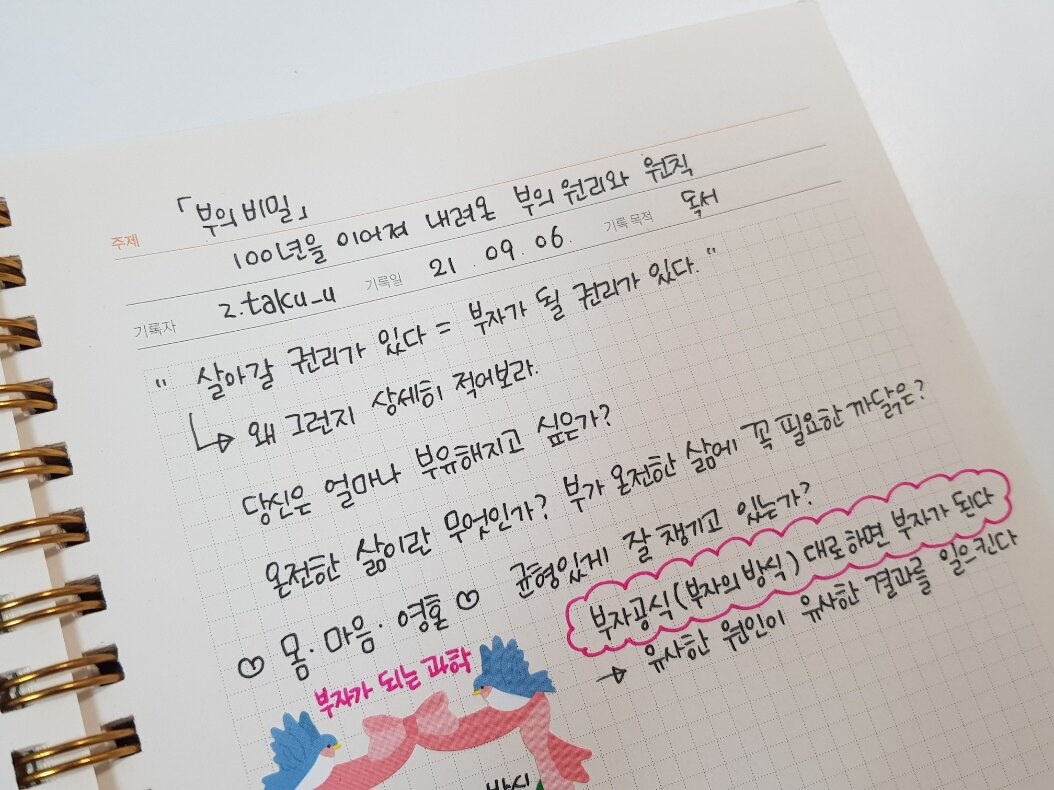 「부의 비밀」
주제 100년을 이어져 내려온 부의 원리와 원칙
기록자 z.taku_u 기록일 21. 09. 06. 기록 목적 독서
" 살아갈 권리가 있다 = 부자가 될 권리가 있다. "
↳ 왜 그런지 상세히 적어보라.
당신은 얼마나 부유해지고 싶은가?
온전한 삶이란 무엇인가? 부가 온전한 삶에 꼭 필요한 까닭은?
♡ 몸·마음·영혼 ♡ 균형있게 잘 챙기고 있는가?
부자공식(부자의 방식) 대로하면 부자가 된다
→ 유사한 원인이 유사한 결과를 일으킨다
부자가 되는 과학